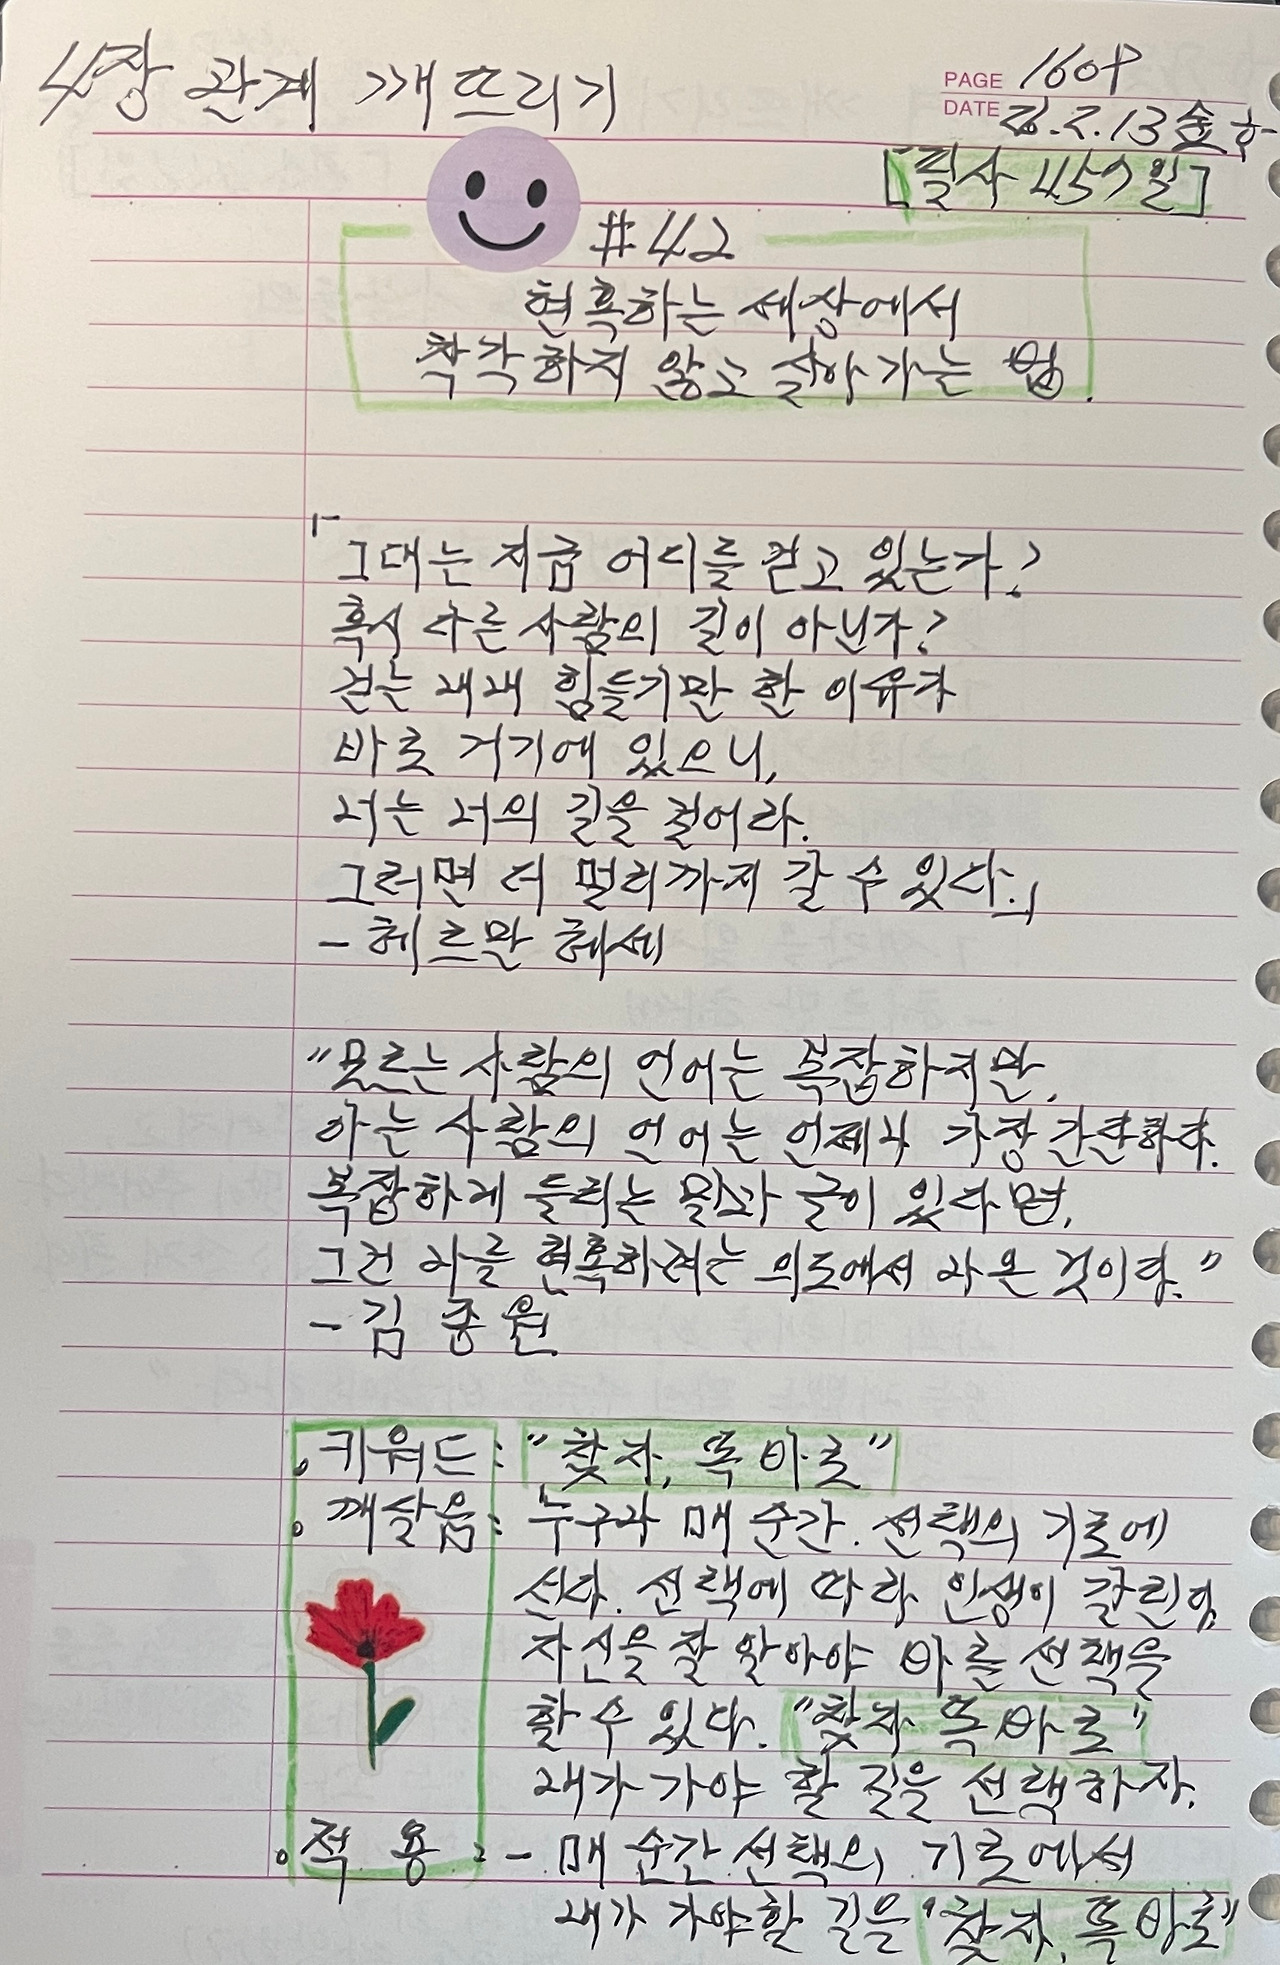 4장 관계 깨뜨리기
PAGE 160P
DATE 26.2.13 송
[필사 457일]
#42
현혹하는 세상에서
착각하지 않고 살아가는 법.
「그대는 지금 어디를 걷고 있는가?
혹시 다른 사람의 길이 아닌가?
걷는 내내 힘들기만 한 이유가
바로 거기에 있으니,
너는 너의 길을 걸어라.
그러면 더 멀리까지 갈 수 있다.」
- 헤르만 헤세
"모르는 사람의 언어는 복잡하지만,
아는 사람의 언어는 언제나 가장 간단하다.
복잡하게 들리는 말과 글이 있다면,
그건 나를 현혹하려는 의도에서 나온 것이다."
- 김종원
키워드: "찾자, 똑바로"
깨달음: 누구나 매 순간. 선택의 기로에
선다. 선택에 따라 인생이 갈린다.
자신을 잘 알아야 바른 선택을
할 수 있다. "찾자 똑바로"
내가 가야 할 길을 선택하자.
적용: - 매 순간 선택의 기로에서
내가 가야할 길을 "찾자, 똑바로"